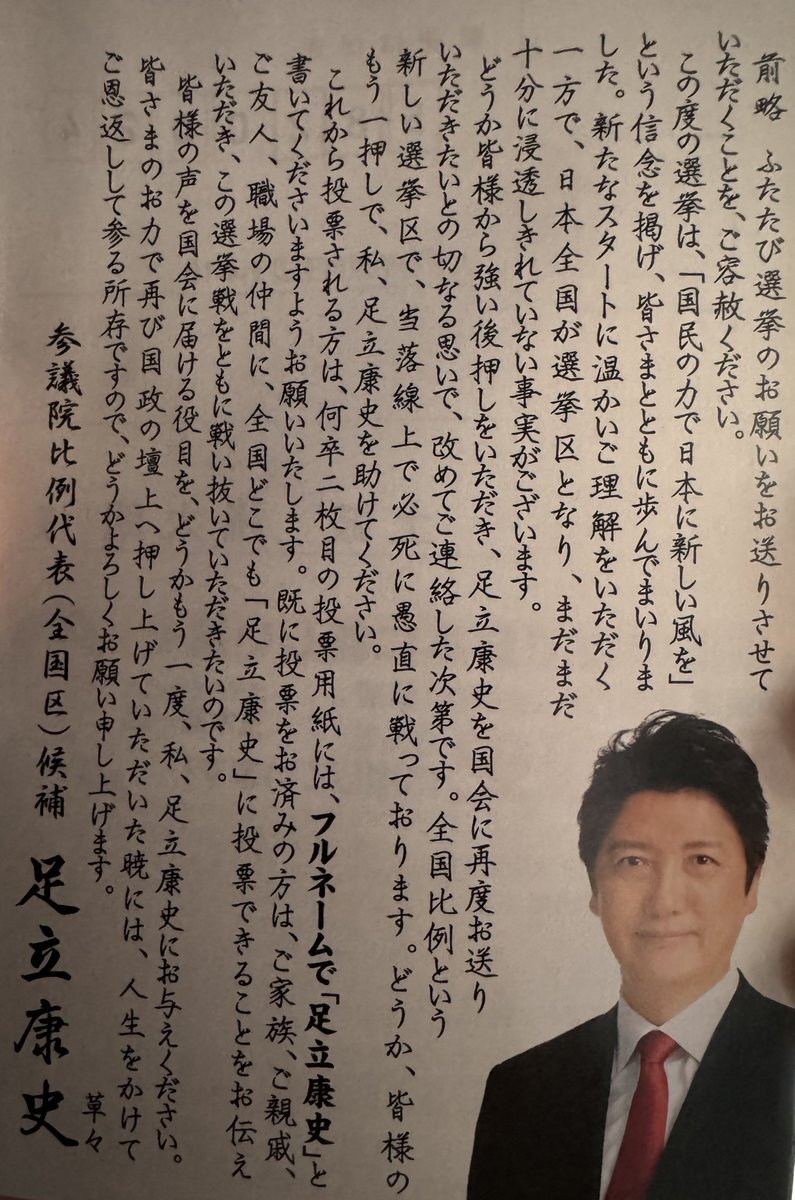 前略　ふたたび選挙のお願いをお送りさせて
いただくことを、ご容赦ください。
この度の選挙は、「国民の力で日本に新しい風を」
という信念を掲げ、皆さまとともに歩んでまいりま
した。新たなスタートに温かいご理解をいただく
一方で、日本全国が選挙区となり、まだまだ
十分に浸透しきれていない事実がございます。
どうか皆様から強い後押しをいただき、足立康史を国会に再度お送り
いただきたいとの切なる思いで、改めてご連絡した次第です。全国比例という
新しい選挙区で、当落線上で必死に愚直に戦っております。どうか、皆様の
もう一押しで、私、足立康史を助けてください。
これから投票される方は、何卒二枚目の投票用紙には、フルネームで「足立康史」と
書いてくださいますようお願いいたします。既に投票をお済みの方は、ご家族、ご親戚、
ご友人、職場の仲間に、全国どこでも「足立康史」に投票できることをお伝え
いただき、この選挙戦をともに戦い抜いていただきたいのです。
皆様の声を国会に届ける役目を、どうかもう一度、私、足立康史にお与えください。
皆さまのお力で再び国政の壇上へ押し上げていただいた暁には、人生をかけて
ご恩返しして参る所存ですので、どうかよろしくお願い申し上げます。
草々
参議院比例代表（全国区）候補　足立康史